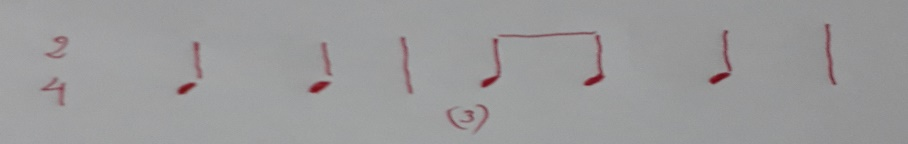 2
4
(3)